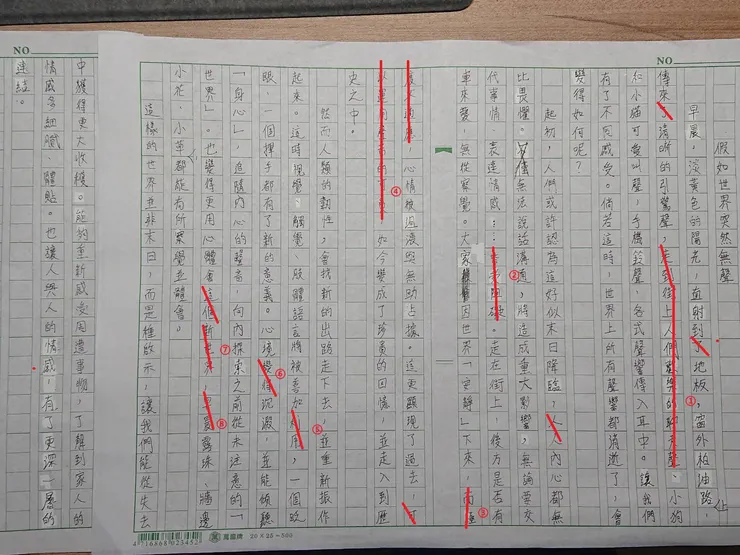 NO
假如世界突然無聲
早晨，淡黃色的陽光，直射到了地板，窗外柏油路，
上
傳來了清晰的引擎聲，走到街上人們歡樂的聊天聲、小狗
和小貓可愛叫聲，手機鈴聲、各式聲響傳入耳中。讓我們
有了不同感受。倘若這時，世界上所有聲響都消逝了，會
變得如何呢？
起初，人們或許認為這好似末日降臨，人人內心都無
比畏懼。無法說話溝通，將造成重大影響，無論要交
代事情、表達情感……走在街上，後方是否有
車來愛，無從察覺。大家因世界「安靜」下來，而
心情被過濾與無助占據。這更顯現了過去，可
如今變成了珍貴的回憶，並走入到歷
史之中。
然而人類的韌性，會找新的出路走下去，並重新振作
起來。這時視覺、觸覺、肢體語言將被善加利用，一個眨
眼、一個揮手都有了新的意義。心境變得沉澱，並能傾聽
「身心」，追隨內心的聲音，向內探索之前從未注意的「
世界」。也變得更用心體會這個新世界，早晨露珠、牆邊
小花、小草都能有所察覺並體會。
這樣的世界並非末日，而是種啟示，讓我們能從失去
NO
中獲得更大收穫。能夠重新感受周遭事物，了解到家人的
情感多細膩、體貼。也讓人與人的情感，有了更深一層的
連結。
①
②
③
④
⑤
⑥
⑦
⑧
4716868023452
鳳凰牌 20×25=500